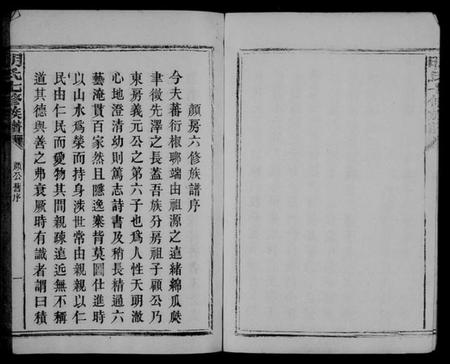 顏房六修族譜序
今夫蕃衍椒聊端由祖源之遠緒綿瓜瓞
聿徵先澤之長蓋吾族分房祖子顧公乃
東房義元公之第六子也為人性天明澈
心地澄清幼則篤志詩書及稍長精通六
藝淹貫百家然且隱逸寨背莫圖仕進時
以山水為榮而持身涉世常由親親以仁
民由仁民而愛物其間親疎遠近無不稱
道其德與善之弗衰厥時有識者謂曰積
明氏七修族譜
公舊序
一